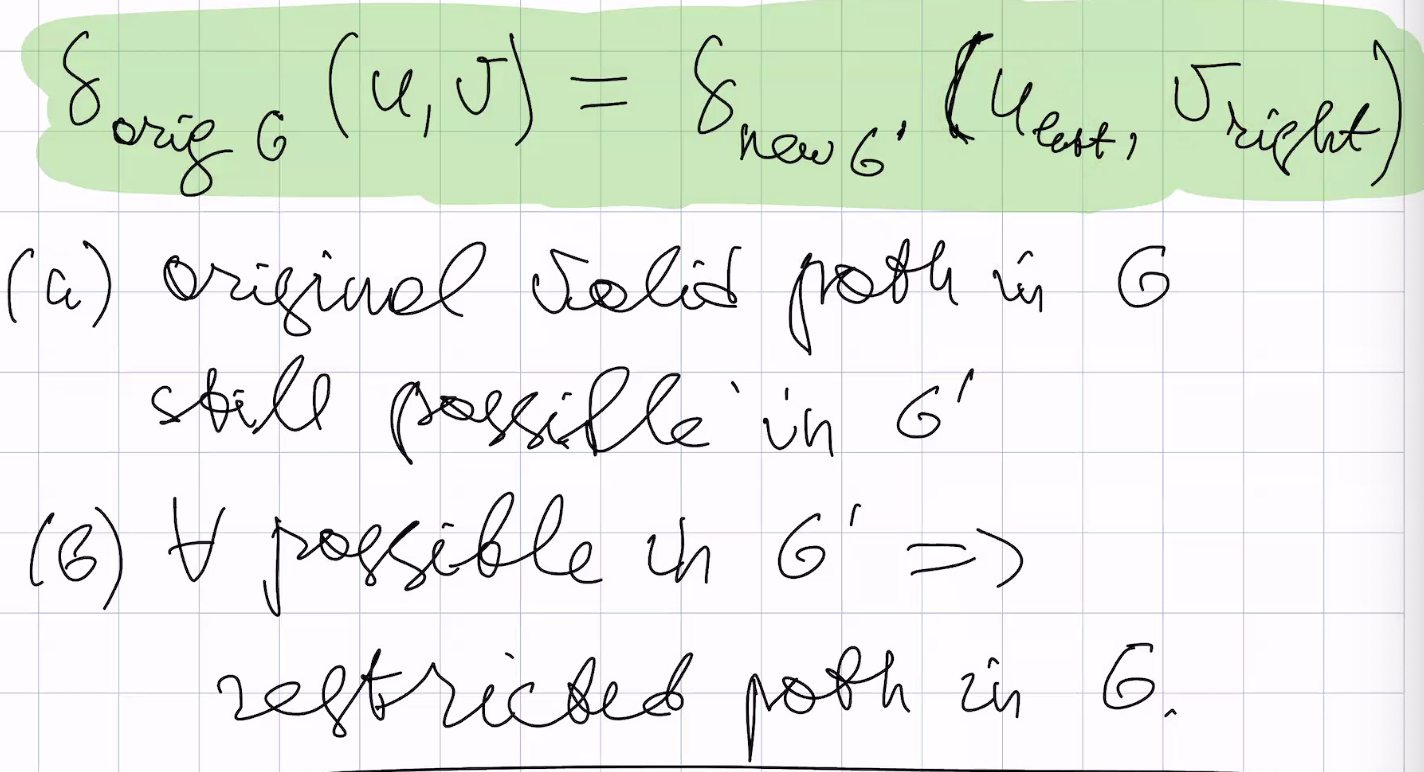 δ_orig G (u, v) = δ_new G' (u_left, v_right)
(a) original valid path in G
still possible in G'
(b) ∀ possible in G' =>
restricted path in G.